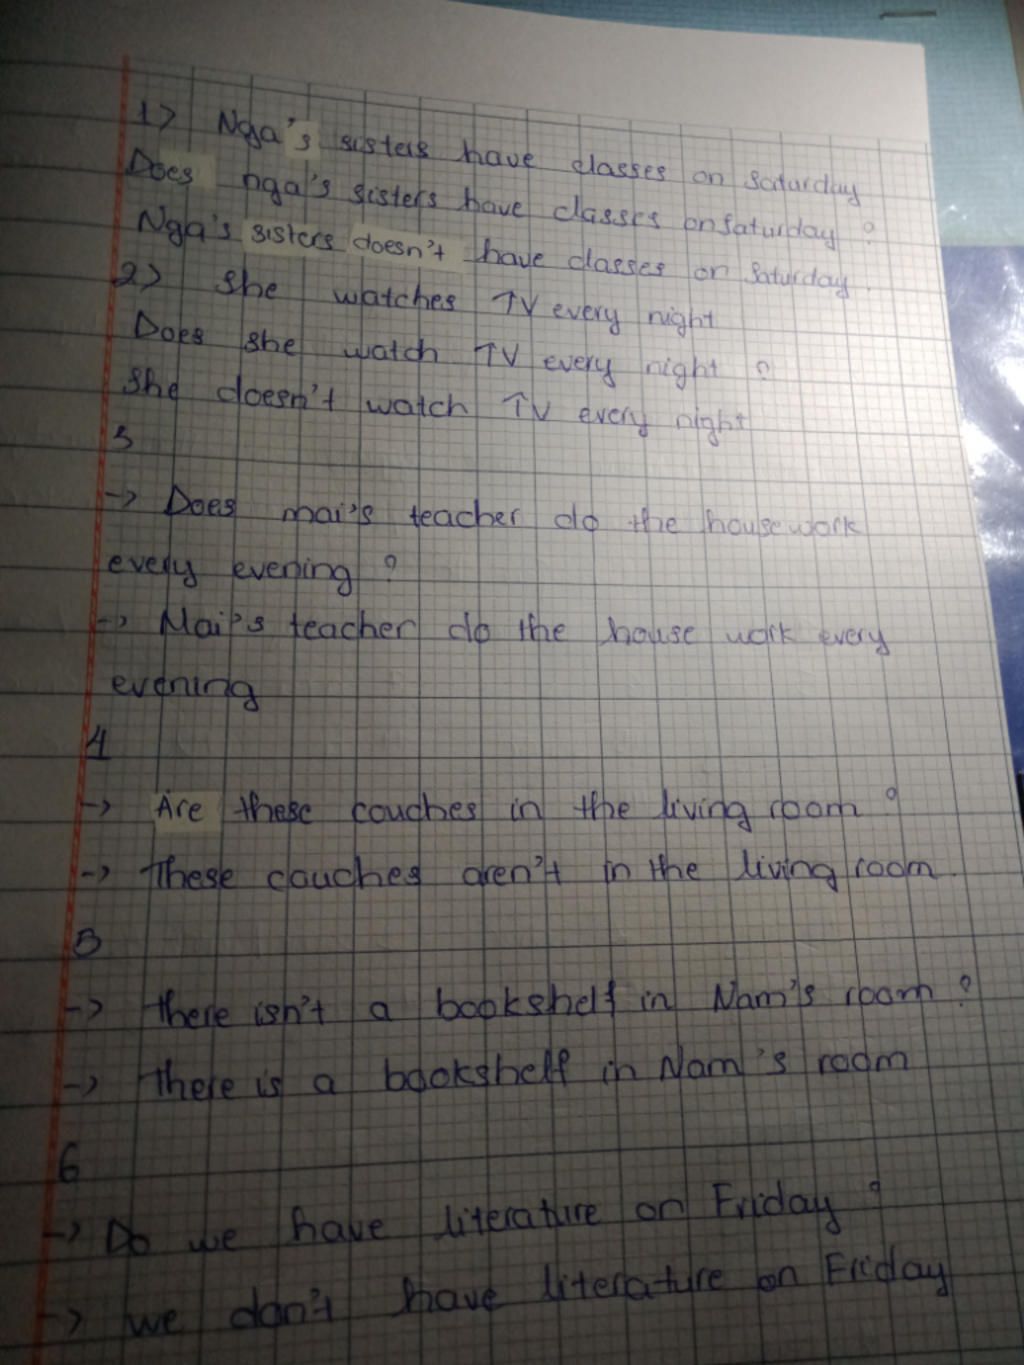 1> Nga's sisters have classes on Saturday
Does nga's sisters have classes on Saturday ?
Nga's sisters doesn't have classes on Saturday.
2> She watches TV every night
Does she watch TV every night ?
She doesn't watch TV every night
3
-> Does mai's teacher do the housework
every evening ?
-> Mai's teacher do the house work every
evening
4
-> Are these couches in the living room ?
-> These couches aren't in the living room.
5
-> there isn't a bookshelf in Nam's room ?
-> there is a bookshelf in Nam's room
6
-> Do we have literature on Friday ?
-> we don't have literature on Friday